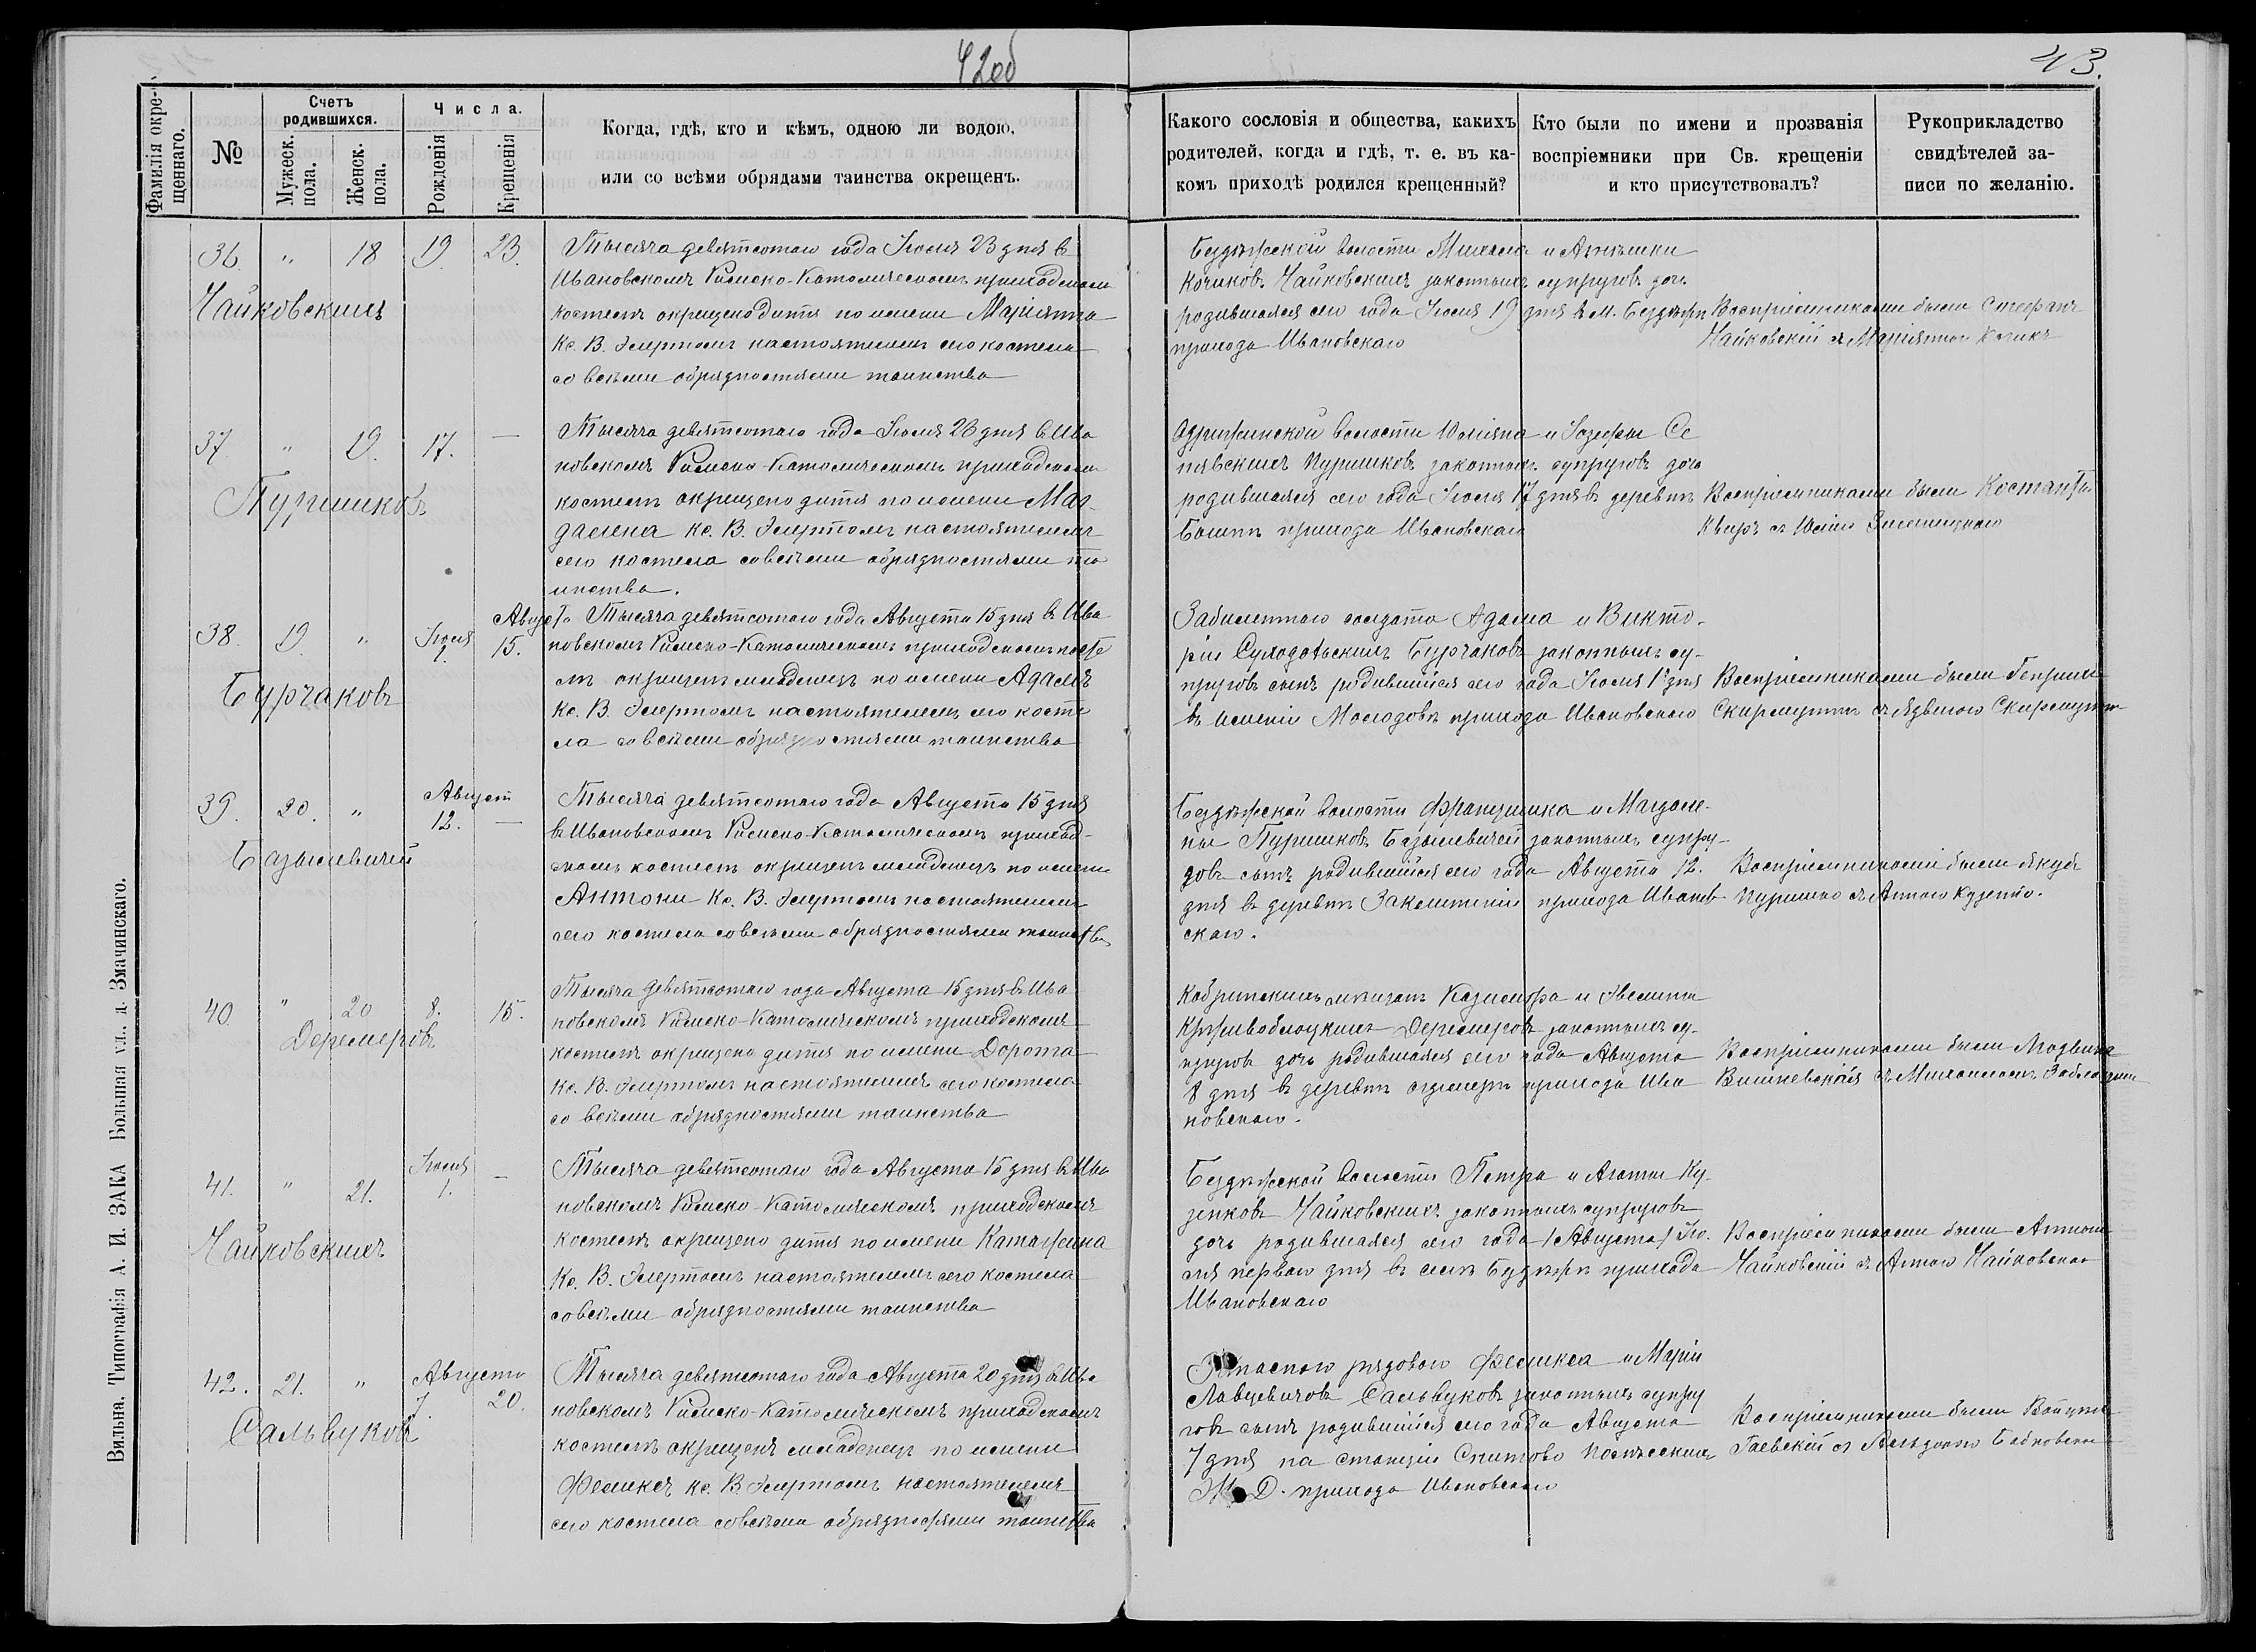 42об
43.
Фамилія окре-
щеннаго.
№
Счетъ
родившихся.
Мужеск.
пола.
Женск.
пола.
Числа.
Рожденія
Крещенія
Когда, гдѣ, кто и кѣмъ, одною ли водою,
или со всѣми обрядами таинства окрещенъ.
Какого сословія и общества, какихъ
родителей, когда и гдѣ, т. е. въ ка-
комъ приходѣ родился крещенный?
Кто были по имени и прозванія
воспріемники при Св. крещеніи
и кто присутствовалъ?
Рукоприкладство
свидѣтелей за-
писи по желанію.
36. " 18 19. 23.
Чайковскихъ
Тысяча девятсотаго года Іюля 23 дня въ
Ивановскомъ Римско-Католическомъ приходскомъ
костелѣ окрещено дитя по имени Маріянна
Кс. В. настоятелемъ сего костела
со всѣми обрядностями таинства
Бездѣжской волости Михала и
Кочиковъ Чайковскихъ законныхъ супруговъ дочь
родившаяся сего года Іюля 19 дня в М. Бездѣжѣ
прихода Ивановскаго
Воспріемниками были Стефанъ
Чайковскій съ Маріянною
37. " 19. 17. —
Пуришковъ
Тысяча девятсотаго года Іюля 23 дня въ Ива
новскомъ Римско-Католическомъ приходскомъ
костелѣ окрещено дитя по имени Маг-
далена Кс. В. настоятелемъ
сего костела со всѣми обрядностями та
инства.
Одрижинской волости Юліяна и Іозефы Се
Пуришковъ законныхъ супруговъ дочь
родившаяся сего года Іюля 17 дня въ деревнѣ
прихода Ивановскаго
Воспріемниками были
съ Юліею
38. 19. " Іюля 1. Августа 15.
Бурчаковъ
Тысяча девятсотаго года Августа 15 дня въ Ива
новскомъ Римско-Католическомъ приходскомъ косте
лѣ окрещенъ младенецъ по имени Адамъ
Кс. В. настоятелемъ сего косте
ла со всѣми обрядностями таинства
солдата Адама и Викто-
ріи Бурчаковъ законныхъ су-
пруговъ сынъ родившійся сего года Іюля 1 дня
въ имѣніи Молодовѣ прихода Ивановскаго
Воспріемниками были Генрихъ
Скирмунтъ съ Ядвигою Скирмунтъ
39. 20. " Август 12. —
Базылевичей
Тысяча девятсотаго года Августа 15 дня
въ Ивановскомъ Римско-Католическомъ приход-
скомъ костелѣ окрещенъ младенецъ по имени
Антони Кс. В. настоятелемъ
сего костела со всѣми обрядностями таинства
Бездѣжской волости Францишка и Магдале-
ны Пуришковъ Базылевичей законныхъ супру-
говъ сынъ родившійся сего года Августа 12.
дня въ деревнѣ прихода Иванов-
скаго.
Воспріемниками были Якубъ
Пуришко съ Анною
40. " 20 8. 15.
Деремеровъ
Тысяча девятсотаго года Августа 15 дня въ Ива
новскомъ Римско-Католическомъ приходскомъ
костелѣ окрещено дитя по имени Дорота
Кс. В. настоятелемъ сего костела
со всѣми обрядностями таинства
Кобринскихъ мѣщанъ Казимѣра и Эвелины
Кржывоблоцкихъ Деремеровъ законныхъ су-
пруговъ дочь родившаяся сего года Августа
8 дня въ деревнѣ прихода Ива
новскаго.
Воспріемниками были
Вишневскій съ
41. " 21. Іюля 1. —
Чайковскихъ
Тысяча девятсотаго года Августа 15 дня въ Ива
новскомъ Римско-Католическомъ приходскомъ
костелѣ окрещено дитя по имени Катаржина
Кс. В. настоятелемъ сего костела
со всѣми обрядностями таинства
Бездѣжской волости Петра и Агаты Ку-
зенковъ Чайковскихъ законныхъ супруговъ
дочь родившаяся сего года /Августа/ Ію-
ля перваго дня въ селѣ Бездѣжѣ прихода
Ивановскаго
Воспріемниками были Антони
Чайковскій съ Анною Чайковскою
42. 21. " Августа 7. 20.
Сальвуковъ
Тысяча девятсотаго года Августа 20 дня въ Ива
новскомъ Римско-Католическомъ приходскомъ
костелѣ окрещенъ младенецъ по имени
Феликсъ кс. В. настоятелемъ
сего костела со всѣми обрядностями таинства
Запаснаго рядоваго Феликса и Маріи
Лавцевичовъ Сальвуковъ законныхъ супру
говъ сынъ родившійся сего года Августа
7 дня на станціи Снитово Полѣсскихъ
Ж. Д. прихода Ивановскаго
Воспріемниками были
Гаевскій съ
Вильна. Типографія А. И. ЗАКА Большая ул., д. Змачинскаго.